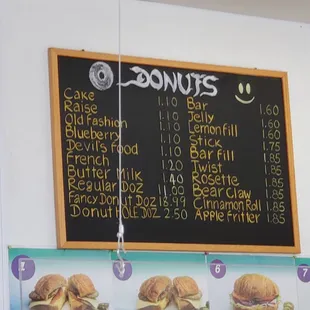 DONUTS
Cake 1.10 Bar 1.60
Raise 1.10 Jelly 1.60
Old Fashion 1.10 Lemonfill 1.60
Blueberry 1.10 Stick 1.75
Devil's food 1.10 Bar fill 1.85
French 1.20 Twist 1.85
Butter Milk 1.40 Rosette 1.85
Regular DOZ 11.00 Bear Claw 1.85
Fancy Donut DOZ Cinnamon Roll 1.85
Donut HOLE DOZ 2.50 Apple fritter 1.85
5 6 7